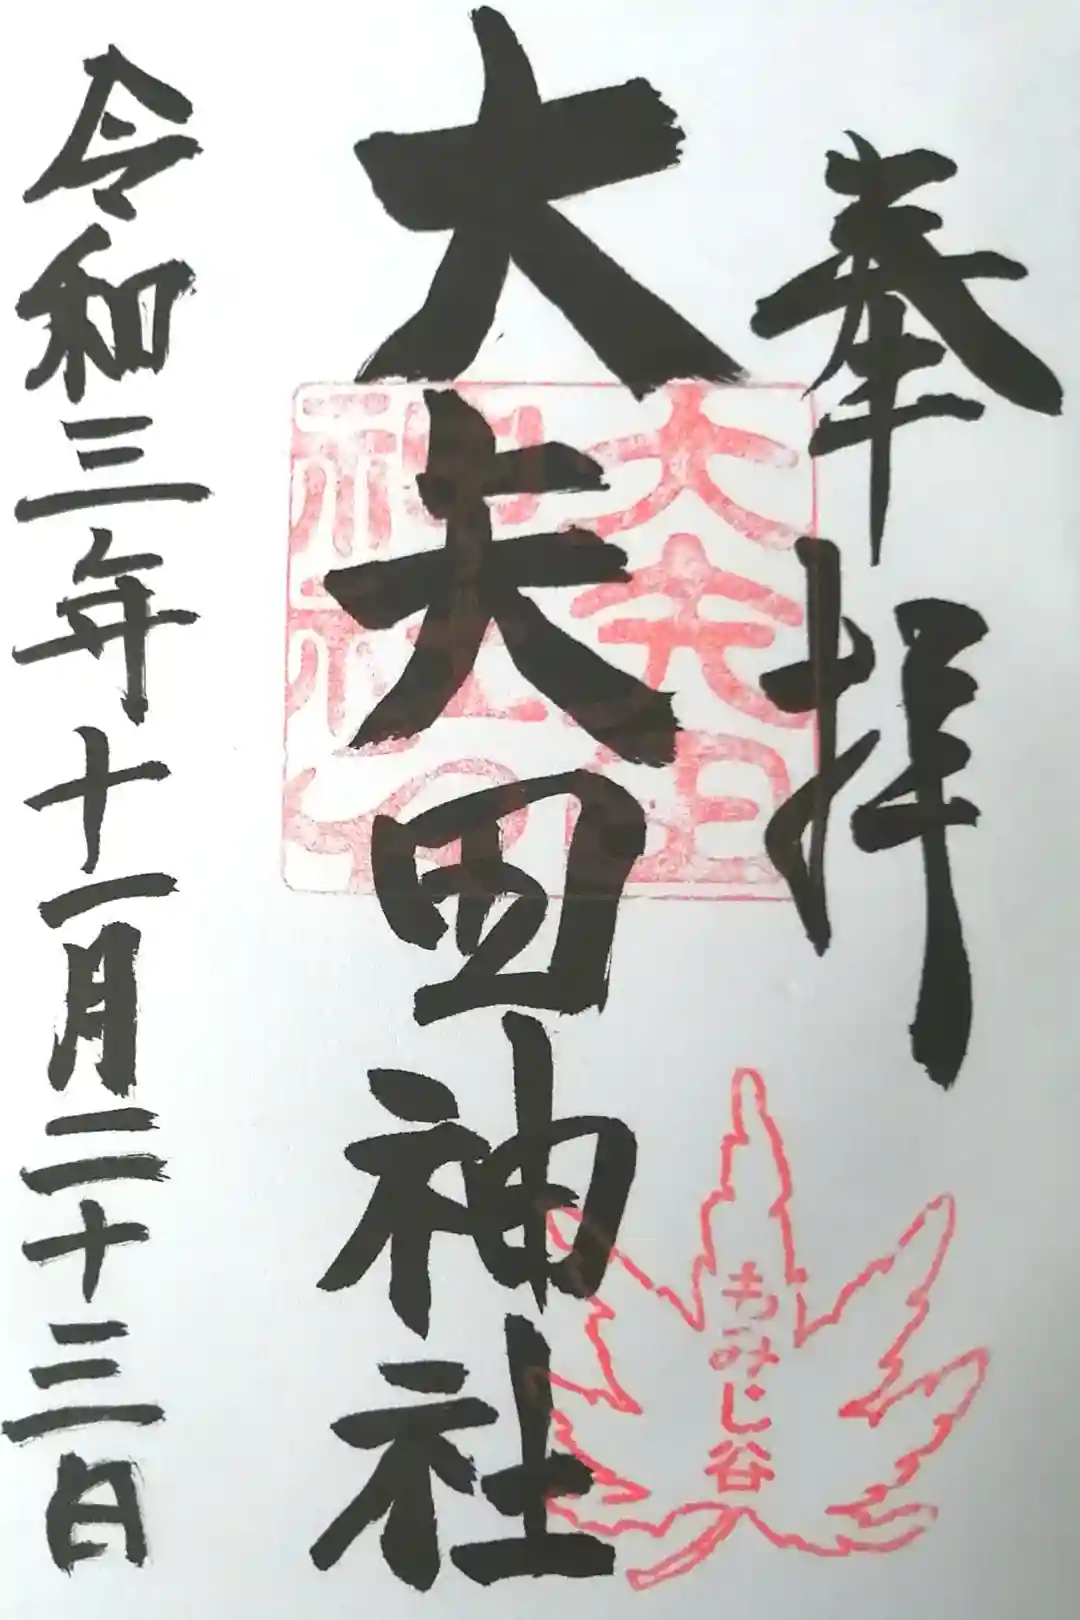 奉拝
大矢田神社
令和三年十一月二十三日
大矢田
神社印
もみじ谷